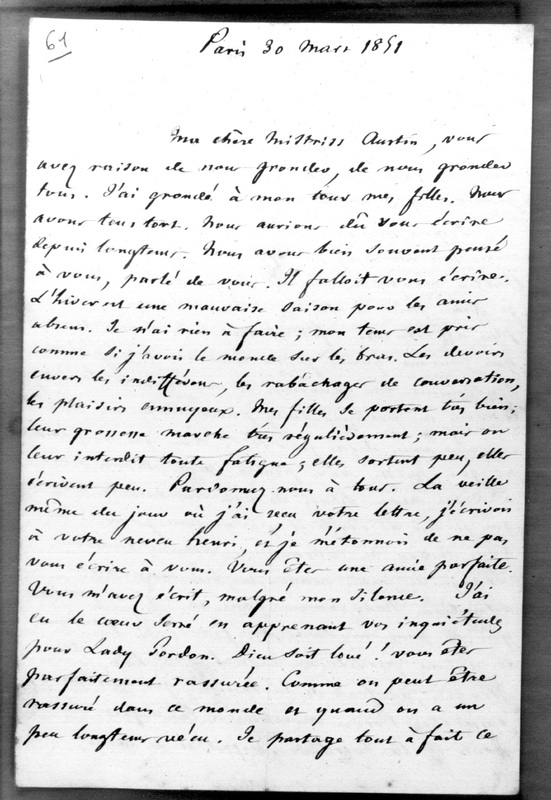 61
Paris 30 mars 1851
Ma chère Mistriss Austin, vous
avez raison de nous gronder, de nous gronder
tous. J'ai grondé à mon tour mes filles. Nous
avons tous tort. Nous aurions dû vous écrire
depuis longtems. Nous avons bien souvent pensé
à vous, parlé de vous. Il falloit vous écrire.
L'hiver est une mauvaise saison pour les amis
absens. Je n'ai rien à faire ; mon tems est pris
comme si j'avois le monde sur les bras. Les devoirs
envers les indifférens, les rabâchages de conversation,
les plaisirs ennuyeux. Mes filles se portent très bien ;
leur grossesse marche très régulièrement ; mais on
leur interdit toute fatigue ; elles sortent peu, elles
écrivent peu. Pardonnez nous à tous. La veille
même du jour où j'ai reçu votre lettre, j'écrivois
à votre neveu henri, et je m'étonnois de ne pas
vous écrire à vous. Vous êtes une amie parfaite.
Vous m'avez écrit, malgré mon silence. J'ai
eu le cœur serré en apprenant vos inquiétudes
pour Lady Gordon. Dieu soit loué ! vous êtes
parfaitement rassurée. Comme on peut être
rassuré dans ce monde et quand on a un
peu longtems vécu. Je partage tout à fait ce